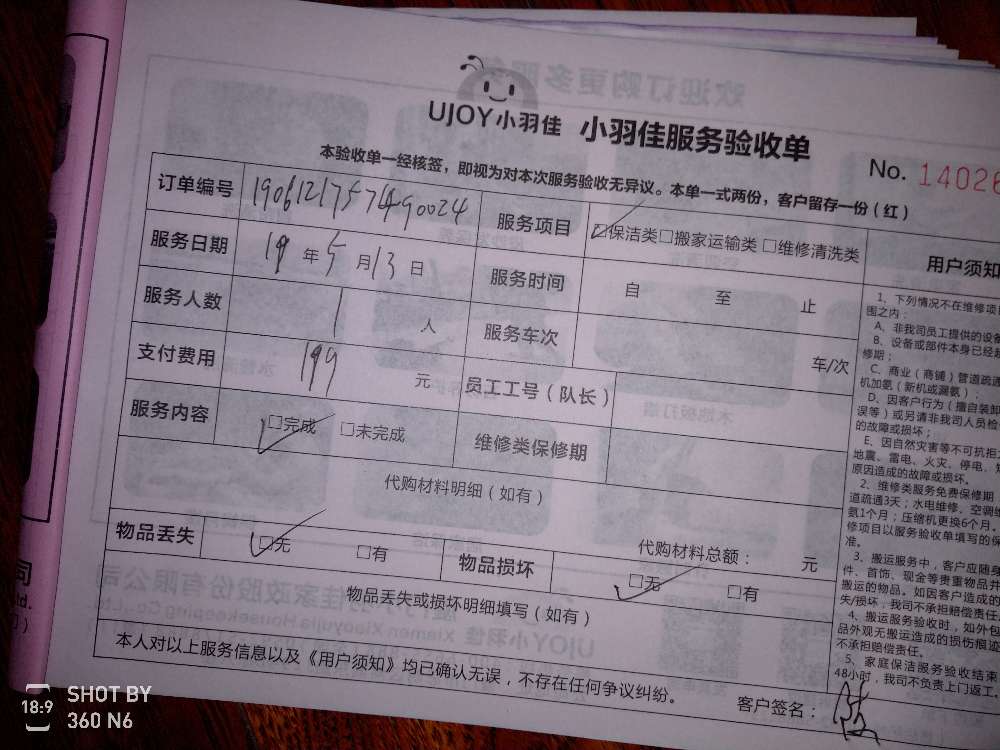 UJOY小羽佳 小羽佳服务验收单
No. 14026
本验收单一经核签，即视为对本次服务验收无异议。本单一式两份，客户留存一份（红）
订单编号 服务项目 保洁类 □搬家运输类 □维修清洗类
服务日期 19 年 5 月 13 日 服务时间 自 至 止
服务人数 1 人 服务车次 车/次
支付费用 199 元 员工工号（队长）
服务内容 □完成 □未完成 维修类保修期
代购材料明细（如有）
代购材料总额： 元
物品丢失 □无 □有 物品损坏 □无 □有
物品丢失或损坏明细填写（如有）
本人对以上服务信息以及《用户须知》均已确认无误，不存在任何争议纠纷。
客户签名：
用户须知
1、下列情况不在维修项
围之内：
A、非我司员工提供的设备
B、设备或部件本身已经
修期；
C、商业（商铺）管道疏通
机加氨（新机或漏氨）；
D、因客户行为（擅自装卸
误等）或另请非我司人员检
的故障或损坏；
E、因自然灾害等不可抗拒
地震、雷电、火灾、停电、
原因造成的故障或损坏。
2、维修类服务免费保修期
道疏通3天；水电维修、空调维
氨1个月；压缩机更换6个月。
修项目以服务验收单填写的保
准。
3、搬运服务中，客户应随身
件、首饰、现金等贵重物品并
搬运的物品。如因客户造成的
失/损坏，我司不承担赔偿责任
4、搬运服务验收时，如外包
品外观无搬运造成的损伤痕迹
不承担赔偿责任。
5、家庭保洁服务验收结束
48小时，我司不负责上门返工。
SHOT BY
18:9
360 N6